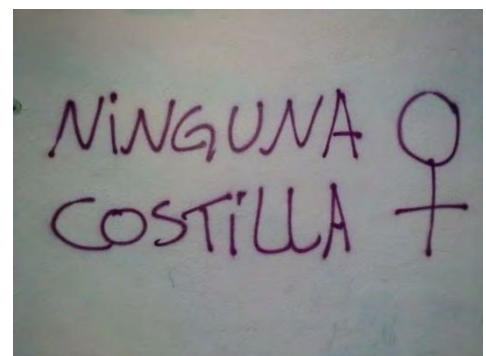 NiNGUNA
COSTiLLA